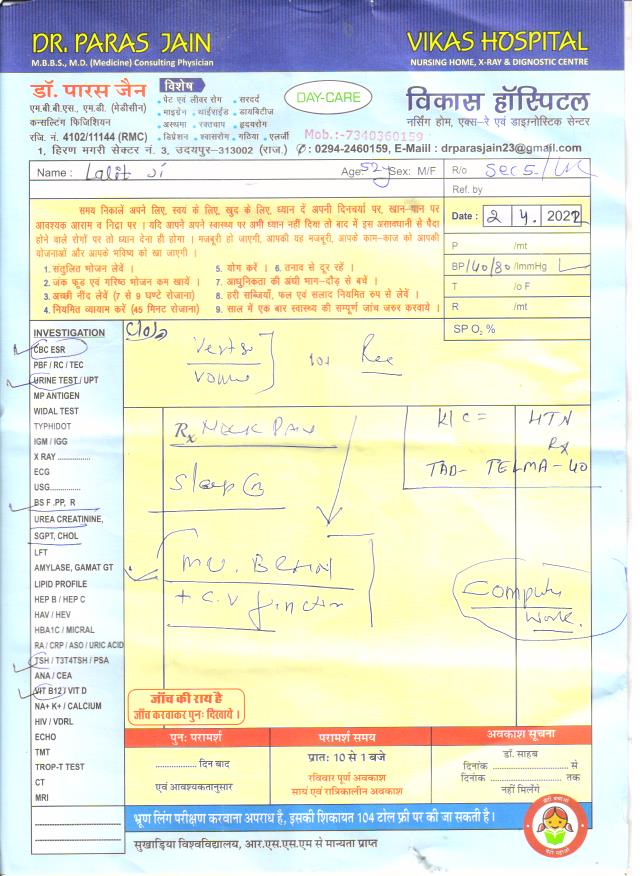 DR. PARAS JAIN
M.B.B.S., M.D. (Medicine) Consulting Physician
VIKAS HOSPITAL
NURSING HOME, X-RAY & DIGNOSTIC CENTRE
डॉ. पारस जैन
एम.बी.बी.एस., एम.डी. (मेडीसीन)
कन्सल्टिंग फिजिशियन
रजि. नं. 4102/11144 (RMC)
विशेष
• पेट एवं लीवर रोग • सरदर्द
• माइग्रेन • थाईराईड • डायबिटीज
• अस्थमा • रक्तचाप • हृदयरोग
• डिप्रेशन • श्वासरोग • गठिया • एलर्जी
DAY-CARE
विकास हॉस्पिटल
नर्सिंग होम, एक्स-रे एवं डाइग्नोस्टिक सेन्टर
Mob.:-7340360159
1, हिरण मगरी सेक्टर नं. 3, उदयपुर-313002 (राज.) ✆ : 0294-2460159, E-Maiil : drparasjain23@gmail.com
Name : Lalit Ji Age: 52y Sex: M/F R/o Sec 5
Ref. by
समय निकालें अपने लिए, स्वयं के लिए, खुद के लिए, ध्यान दें अपनी दिनचर्या पर, खान-पान पर
आवश्यक आराम व निद्रा पर । यदि आपने अपने स्वास्थ्य पर अभी ध्यान नहीं दिया तो बाद में इस असावधानी से पैदा
होने वाले रोगों पर तो ध्यान देना ही होगा । मजबूरी हो जाएगी, आपकी यह मजबूरी, आपके काम-काज को आपकी
योजनाओं और आपके भविष्य को खा जाएगी ।
1. संतुलित भोजन लेवें । 5. योग करें । 6. तनाव से दूर रहें ।
2. जंक फूड एवं गरिष्ठ भोजन कम खायें । 7. आधुनिकता की अंधी भाग-दौड़ से बचें ।
3. अच्छी नींद लेवें (7 से 9 घण्टे रोजाना) 8. हरी सब्जियाँ, फल एवं सलाद नियमित रुप से लेवें ।
4. नियमित व्यायाम करें (45 मिनट रोजाना) 9. साल में एक बार स्वास्थ्य की सम्पूर्ण जांच जरुर करवाये ।
Date : 2 4. 2022
P /mt
BP 140/80 /ImmHg
T /o F
R /mt
SP O₂ %
INVESTIGATION
CBC ESR
PBF / RC / TEC
URINE TEST / UPT
MP ANTIGEN
WIDAL TEST
TYPHIDOT
IGM / IGG
X RAY ................
ECG
USG................
BS F .PP, R
UREA CREATININE,
SGPT, CHOL
LFT
AMYLASE, GAMAT GT
LIPID PROFILE
HEP B / HEP C
HAV / HEV
HBA1C / MICRAL
RA / CRP / ASO / URIC ACID
TSH / T3T4TSH / PSA
ANA / CEA
VIT B12 / VIT D
NA+ K+ / CALCIUM
HIV / VDRL
ECHO
TMT
TROP-T TEST
CT
MRI
C/o
Rx Neck Pain
K/C = HTN
Rx
TAB- TELMA-40
Sleep
+ C.V
Computer
Work.
जाँच की राय है
जाँच करवाकर पुनः दिखाये ।
पुनः परामर्श
.................. दिन बाद
एवं आवश्यकतानुसार
परामर्श समय
प्रातः 10 से 1 बजे
रविवार पूर्ण अवकाश
सायं एवं रात्रिकालीन अवकाश
अवकाश सूचना
डॉ. साहब
दिनांक .................. से
दिनांक .................. तक
नहीं मिलेंगे
भ्रूण लिंग परीक्षण करवाना अपराध है, इसकी शिकायत 104 टोल फ्री पर की जा सकती है।
सुखाड़िया विश्वविद्यालय, आर.एस.एस.एम से मान्यता प्राप्त
बेटी बचाओ
बेटी पढ़ाओ